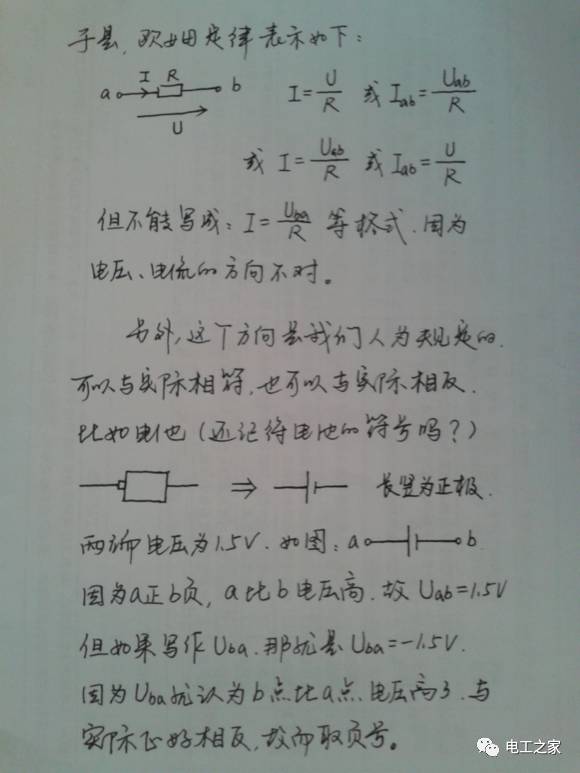 于是,欧姆定律表示如下:
a I R b U I=U/R 或 Iab=Uab/R
或 I=Uab/R 或 Iab=U/R
但不能写成:I=Uba/R 等格式.因为
电压、电流的方向不对。
另外,这个方向是我们人为规定的.
可以与实际相符,也可以与实际相反.
比如电池(还记得电池的符号吗?)
⇒ 长竖为正极.
两端电压为1.5V.如图:a b
因为a正b负,a比b电压高.故Uab=1.5V
但如果写作Uba.那就是Uba=-1.5V.
因为Uba就认为b点比a点电压高了.与
实际正好相反,故而取负号。
电工之家